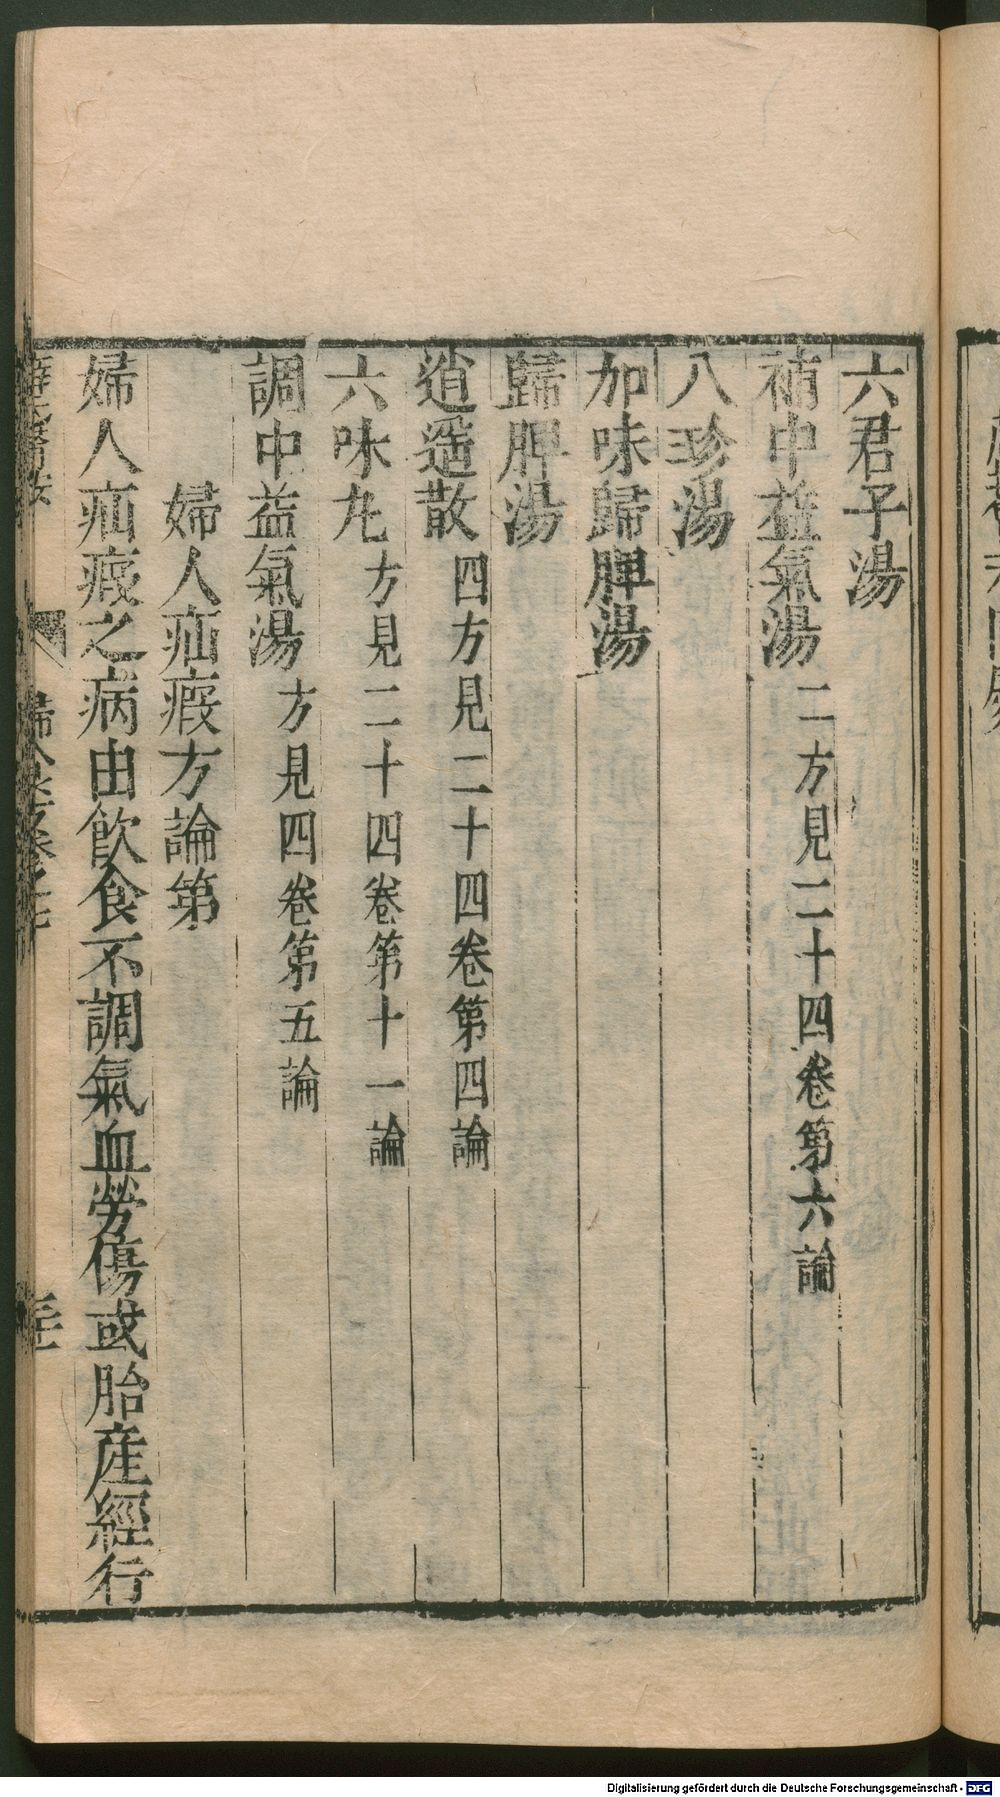 六君子湯
補中益氣湯 二方見二十四卷第六論
八珍湯
加味歸脾湯
歸脾湯
逍遥散 四方見二十四卷第四論
六味丸 方見二十四卷第十一論
調中益氣湯 方見四卷第五論
婦人疝瘕方論第
婦人疝瘕之病由飲食不調氣血勞傷或胎産經行
婦人良方卷之七
Digitalisierung gefördert durch die Deutsche Forschungsgemeinschaft - DFG